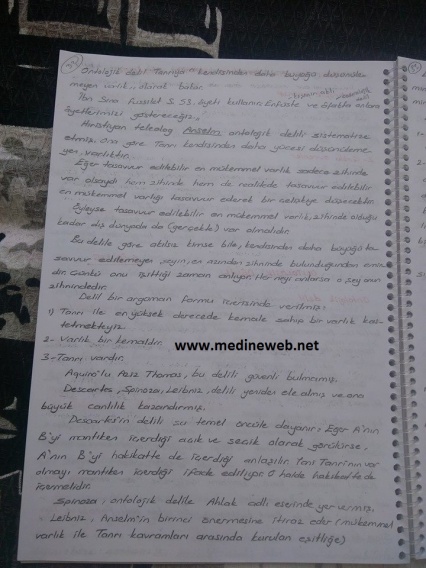 Ontolojik delil Tanrıyı "kendisinden daha büyüğü düşünüle-
meyen varlık" olarak bakar.
İbn Sina Fussilet S. 53. ayeti kullanır. Enfüste ve afakta onlara
ayetlerimizi göstereceğiz.
Hıristiyan teolog Anselm ontolojik delili sistematize
etmiş. Ona göre Tanrı kendisinden daha yücesi düşünüleme-
yen varlıktır.
Eğer tasavvur edilebilir en mükemmel varlık sadece zihinde
var olsaydı hem zihinde hem de realitede tasavvur edilebilir
en mükemmel varlığı tasavvur ederek bir çelişkiye düşecektir.
Öyleyse tasavvur edilebilir en mükemmel varlık, zihinde olduğu
kadar dış dünyada da (gerçekte) var olmalıdır.
Bu delile göre akılsız kimse bile, kendisinden daha büyüğü ta-
savvur edilemeyen şeyin, en azından zihninde bulunduğundan emin-
dir. Çünkü onu işittiği zaman anlıyor. Her neyi anlarsa o şey onun
zihnindedir.
Delil bir argüman formu içerisinde verilmiş:
1) Tanrı ile en yüksek derecede kemale sahip bir varlık kas-
tetmekteyiz.
2- Varlık bir kemaldir.
www.medineweb.net
3- Tanrı vardır.
Aquino'lu Aziz Thomas, bu delili güvenli bulmamış.
Descartes, Spinoza, Leibniz, delili yeniden ele almış ve ona
büyük canlılık kazandırmış.
Descartes'in delili şu temel öncüle dayanır; Eğer A'nın
B'yi mantıken içerdiği açık ve seçik olarak görülürse,
A'nın B'yi hakikatte de içerdiği anlaşılır. Yani Tanrı'nın var
olmayı mantıken içerdiği ifade ediliyor. O halde hakikatte de
içermelidir.
Spinoza, ontolojik delile Ahlak adlı eserinde yer vermiş.
Leibniz, Anselm'in birinci önermesine itiraz eder (mükemmel
varlık ile Tanrı kavramları arasında kurulan eşitliğe)